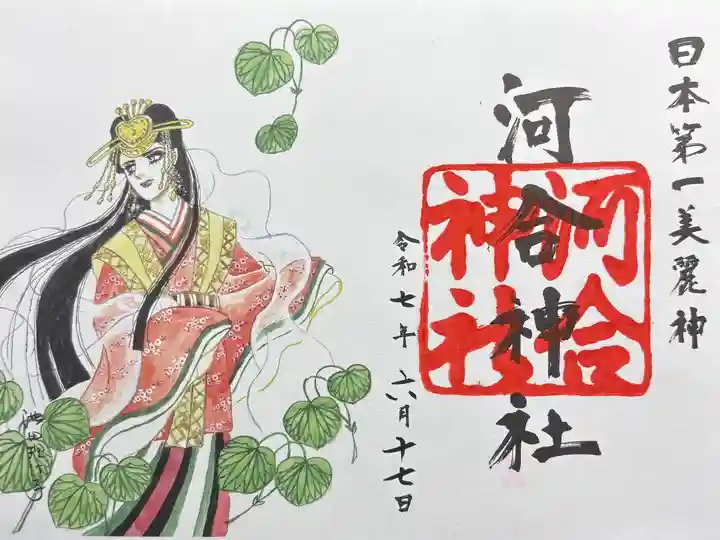 日本第一美麗神
河合神社
河合
神社
令和七年 六月十七日
池田理代子